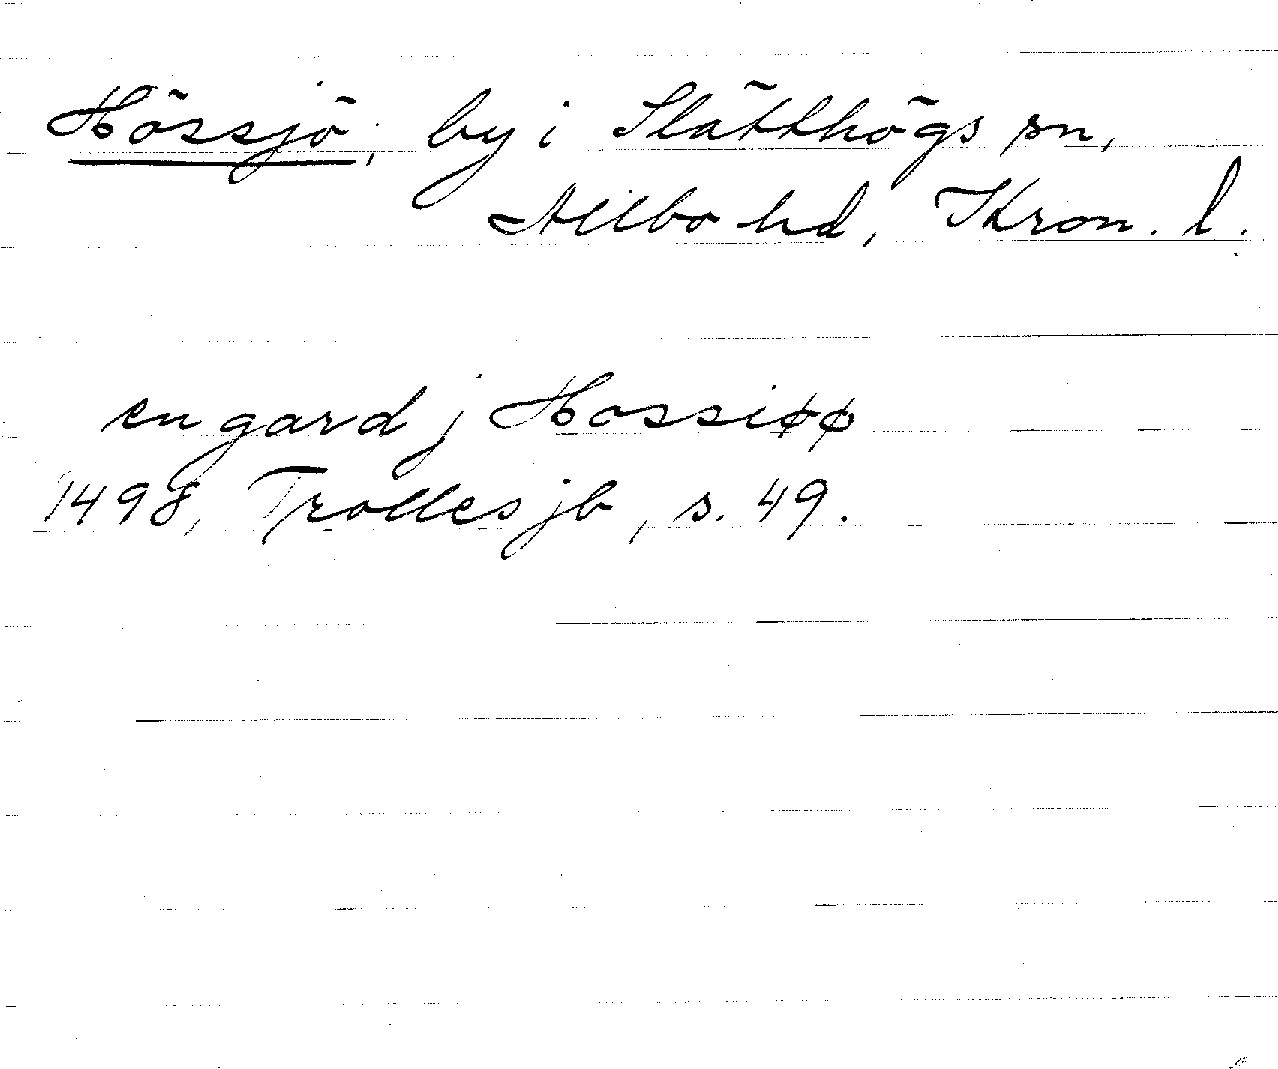 Hössjö, by i Slätthögs sn,
Allbo hd, Kron. l.
en gard j Hossiøø
1498, Trolles jb, s. 49.